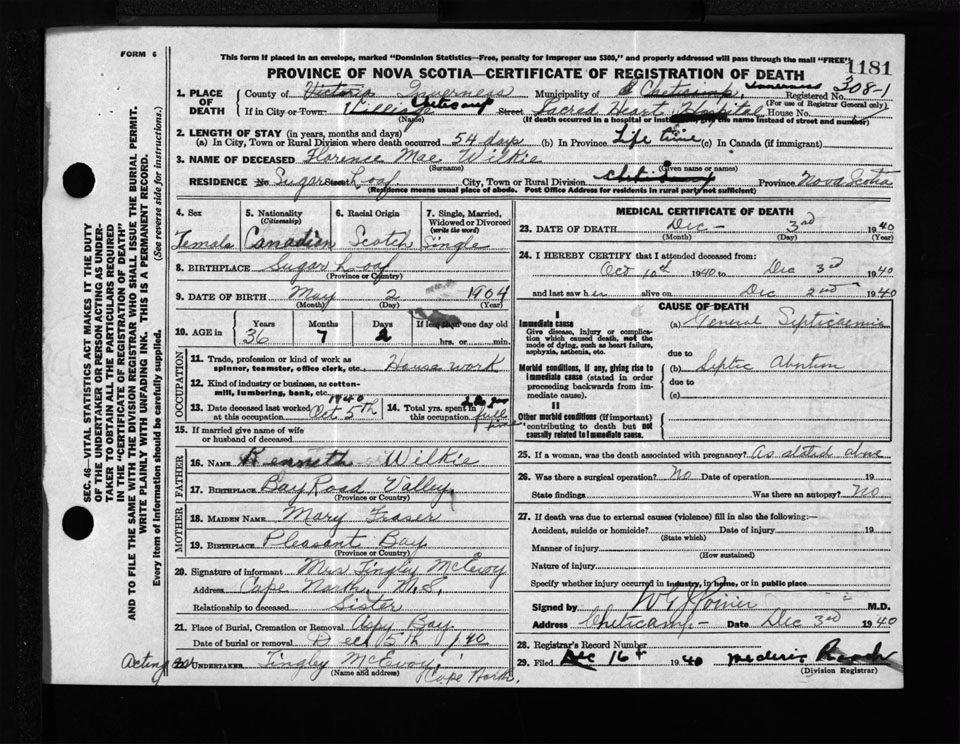 FORM 6
This form if placed in an envelope, marked "Dominion Statistics—Free, penalty for improper use $300," and properly addressed will pass through the mail "FREE"
1181
PROVINCE OF NOVA SCOTIA—CERTIFICATE OF REGISTRATION OF DEATH
1. PLACE OF DEATH
County of Victoria Inverness Municipality of Cheticamp, Inverness Registered No. 308-1
(For use of Registrar General only)
If in City or Town Village Cheticamp Street Sacred Heart Hospital House No.
(Name) (If death occurred in a hospital or institution, the name instead of street and number)
2. LENGTH OF STAY (in years, months and days)
(a) In City, Town or Rural Division where death occurred 54 days (b) In Province Life time (c) In Canada (if immigrant)
3. NAME OF DECEASED Florence Mae Wilkie
(Surname) (Given name or names)
RESIDENCE No. Sugar Street Loaf City, Town or Rural Division Province Nova Scotia
(Residence means usual place of abode. Post Office Address for residents in rural parts not sufficient)
4. Sex Female
5. Nationality (Citizenship) Canadian
6. Racial Origin Scotch
7. Single, Married, Widowed or Divorced (write the word) Single
8. BIRTHPLACE Sugar Loaf
(Province or Country)
9. DATE OF BIRTH May 2 1904
(Month) (Day) (Year)
10. AGE in Years 36 Months 7 Days 2 If less than one day old hrs. or min.
OCCUPATION
11. Trade, profession or kind of work as spinner, teamster, office clerk, etc. House work
12. Kind of industry or business, as cotton-mill, lumbering, bank, etc.
13. Date deceased last worked at this occupation Oct 5th 1940
14. Total yrs. spent in this occupation full time
15. If married give name of wife or husband of deceased
FATHER
16. NAME Kenneth Wilkie
17. BIRTHPLACE Bay Road Valley
(Province or Country)
MOTHER
18. MAIDEN NAME Mary Fraser
19. BIRTHPLACE Pleasant Bay
(Province or Country)
20. Signature of informant Mrs Tingley McEvoy
Address Cape North, N.S.
Relationship to deceased Sister
21. Place of Burial, Cremation or Removal Aspy Bay
Date of burial or removal Dec 5th 1940
Acting as
22. UNDERTAKER Tingley McEvoy,
(Name and address) Cape North.
MEDICAL CERTIFICATE OF DEATH
23. DATE OF DEATH Dec - 3rd 1940
(Month) (Day) (Year)
24. I HEREBY CERTIFY that I attended deceased from:
Oct 10th 1940 to Dec 3rd 1940
and last saw her alive on Dec 2nd 1940
CAUSE OF DEATH
I
Immediate cause
Give disease, injury or complication which caused death, not the mode of dying, such as heart failure, asphyxia, asthenia, etc.
(a) General Septicaemia
due to
Morbid conditions, if any, giving rise to immediate cause (stated in order proceeding backwards from immediate cause).
(b) Septic Abortion
due to
(c)
II
Other morbid conditions (if important) contributing to death but not causally related to immediate cause.
25. If a woman, was the death associated with pregnancy? As stated above
26. Was there a surgical operation? No Date of operation 19
State findings Was there an autopsy? No
27. If death was due to external causes (violence) fill in also the following:—
Accident, suicide or homicide? Date of injury 19
(State which)
Manner of injury
(How sustained)
Nature of injury
Specify whether injury occurred in Industry, in home, or in public place
Signed by M.D.
Address Cheticamp - Date Dec 3rd 1940
28. Registrar's Record Number
29. Filed Dec 16th 1940 Mederic
(Division Registrar)
SEC. 46—VITAL STATISTICS ACT MAKES IT THE DUTY
OF THE UNDERTAKER OR PERSON ACTING AS UNDER-
TAKER TO OBTAIN ALL THE PARTICULARS REQUIRED
IN THE "CERTIFICATE OF REGISTRATION OF DEATH"
AND TO FILE THE SAME WITH THE DIVISION REGISTRAR WHO SHALL ISSUE THE BURIAL PERMIT.
WRITE PLAINLY WITH UNFADING INK. THIS IS A PERMANENT RECORD.
Every item of Information should be carefully supplied. (See reverse side for instructions.)